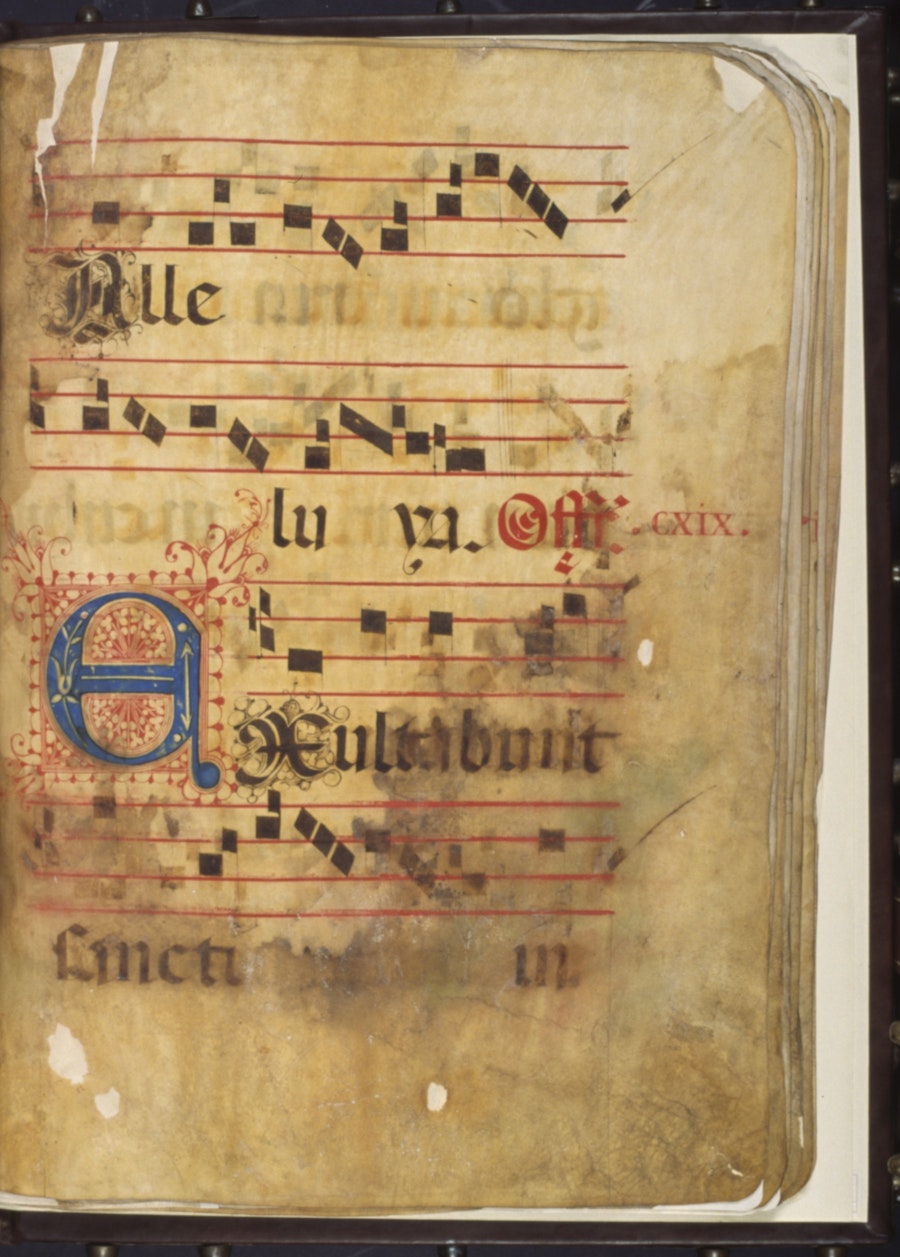 Alle
lu ya. Offr̃. .CXIX.
EXultabunt
sancti in